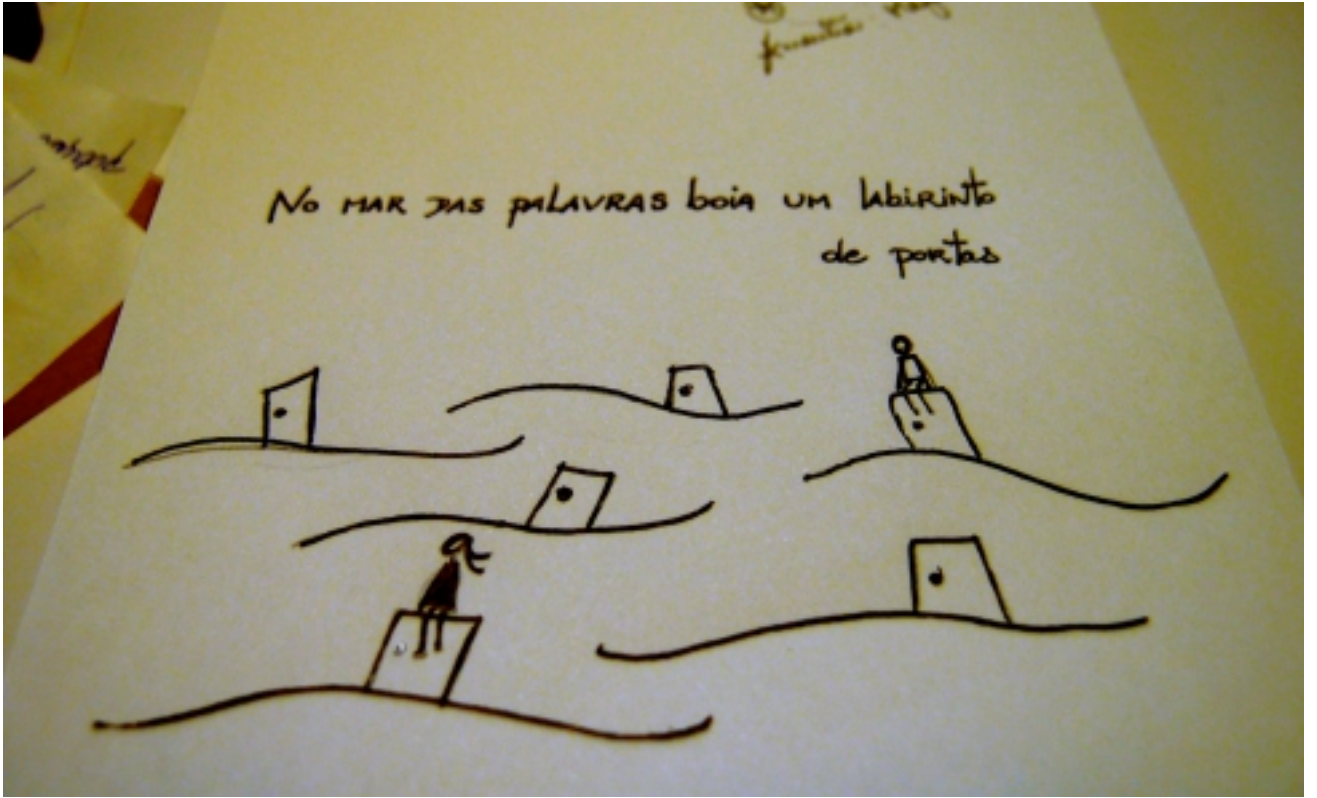 No mar das palavras boia um labirinto
de portas